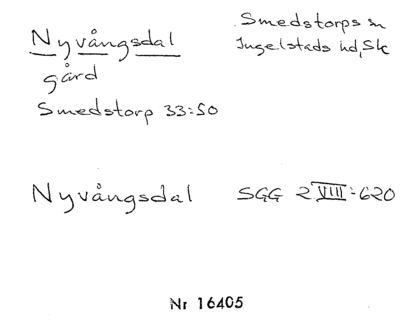 Nyvångsdal
gård
Smedstorp 33:50
Smedstorps sn
Ingelstads hd, Sk
Nyvångsdal SGG 2 VIII:620
Nr 16405